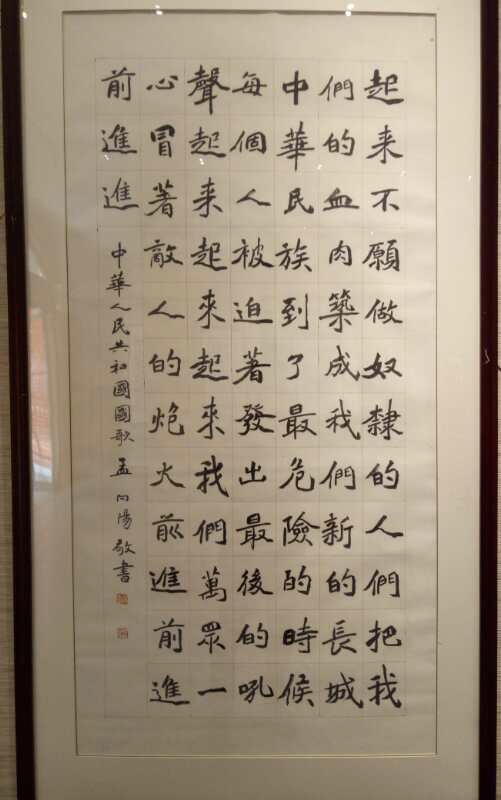 起来不願做奴隸的人們把我
們的血肉築成我們新的長城
中華民族到了最危險的時候
每個人被迫著發出最後的吼
聲起来起來起來我們萬眾一
心冒著敵人的炮火前進前進
前進進
中華人民共和國國歌 孟向陽敬書